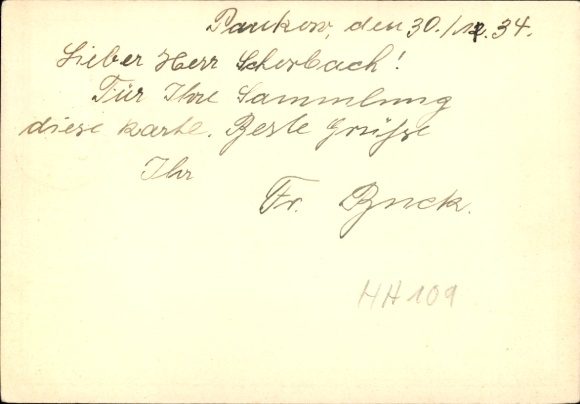 Pankow, den 30./12.34.
Lieber Herr Scherbach!
Für Ihre Sammlung
diese Karte. Beste Grüsse
Ihr
Fr. Buck.
HH 109